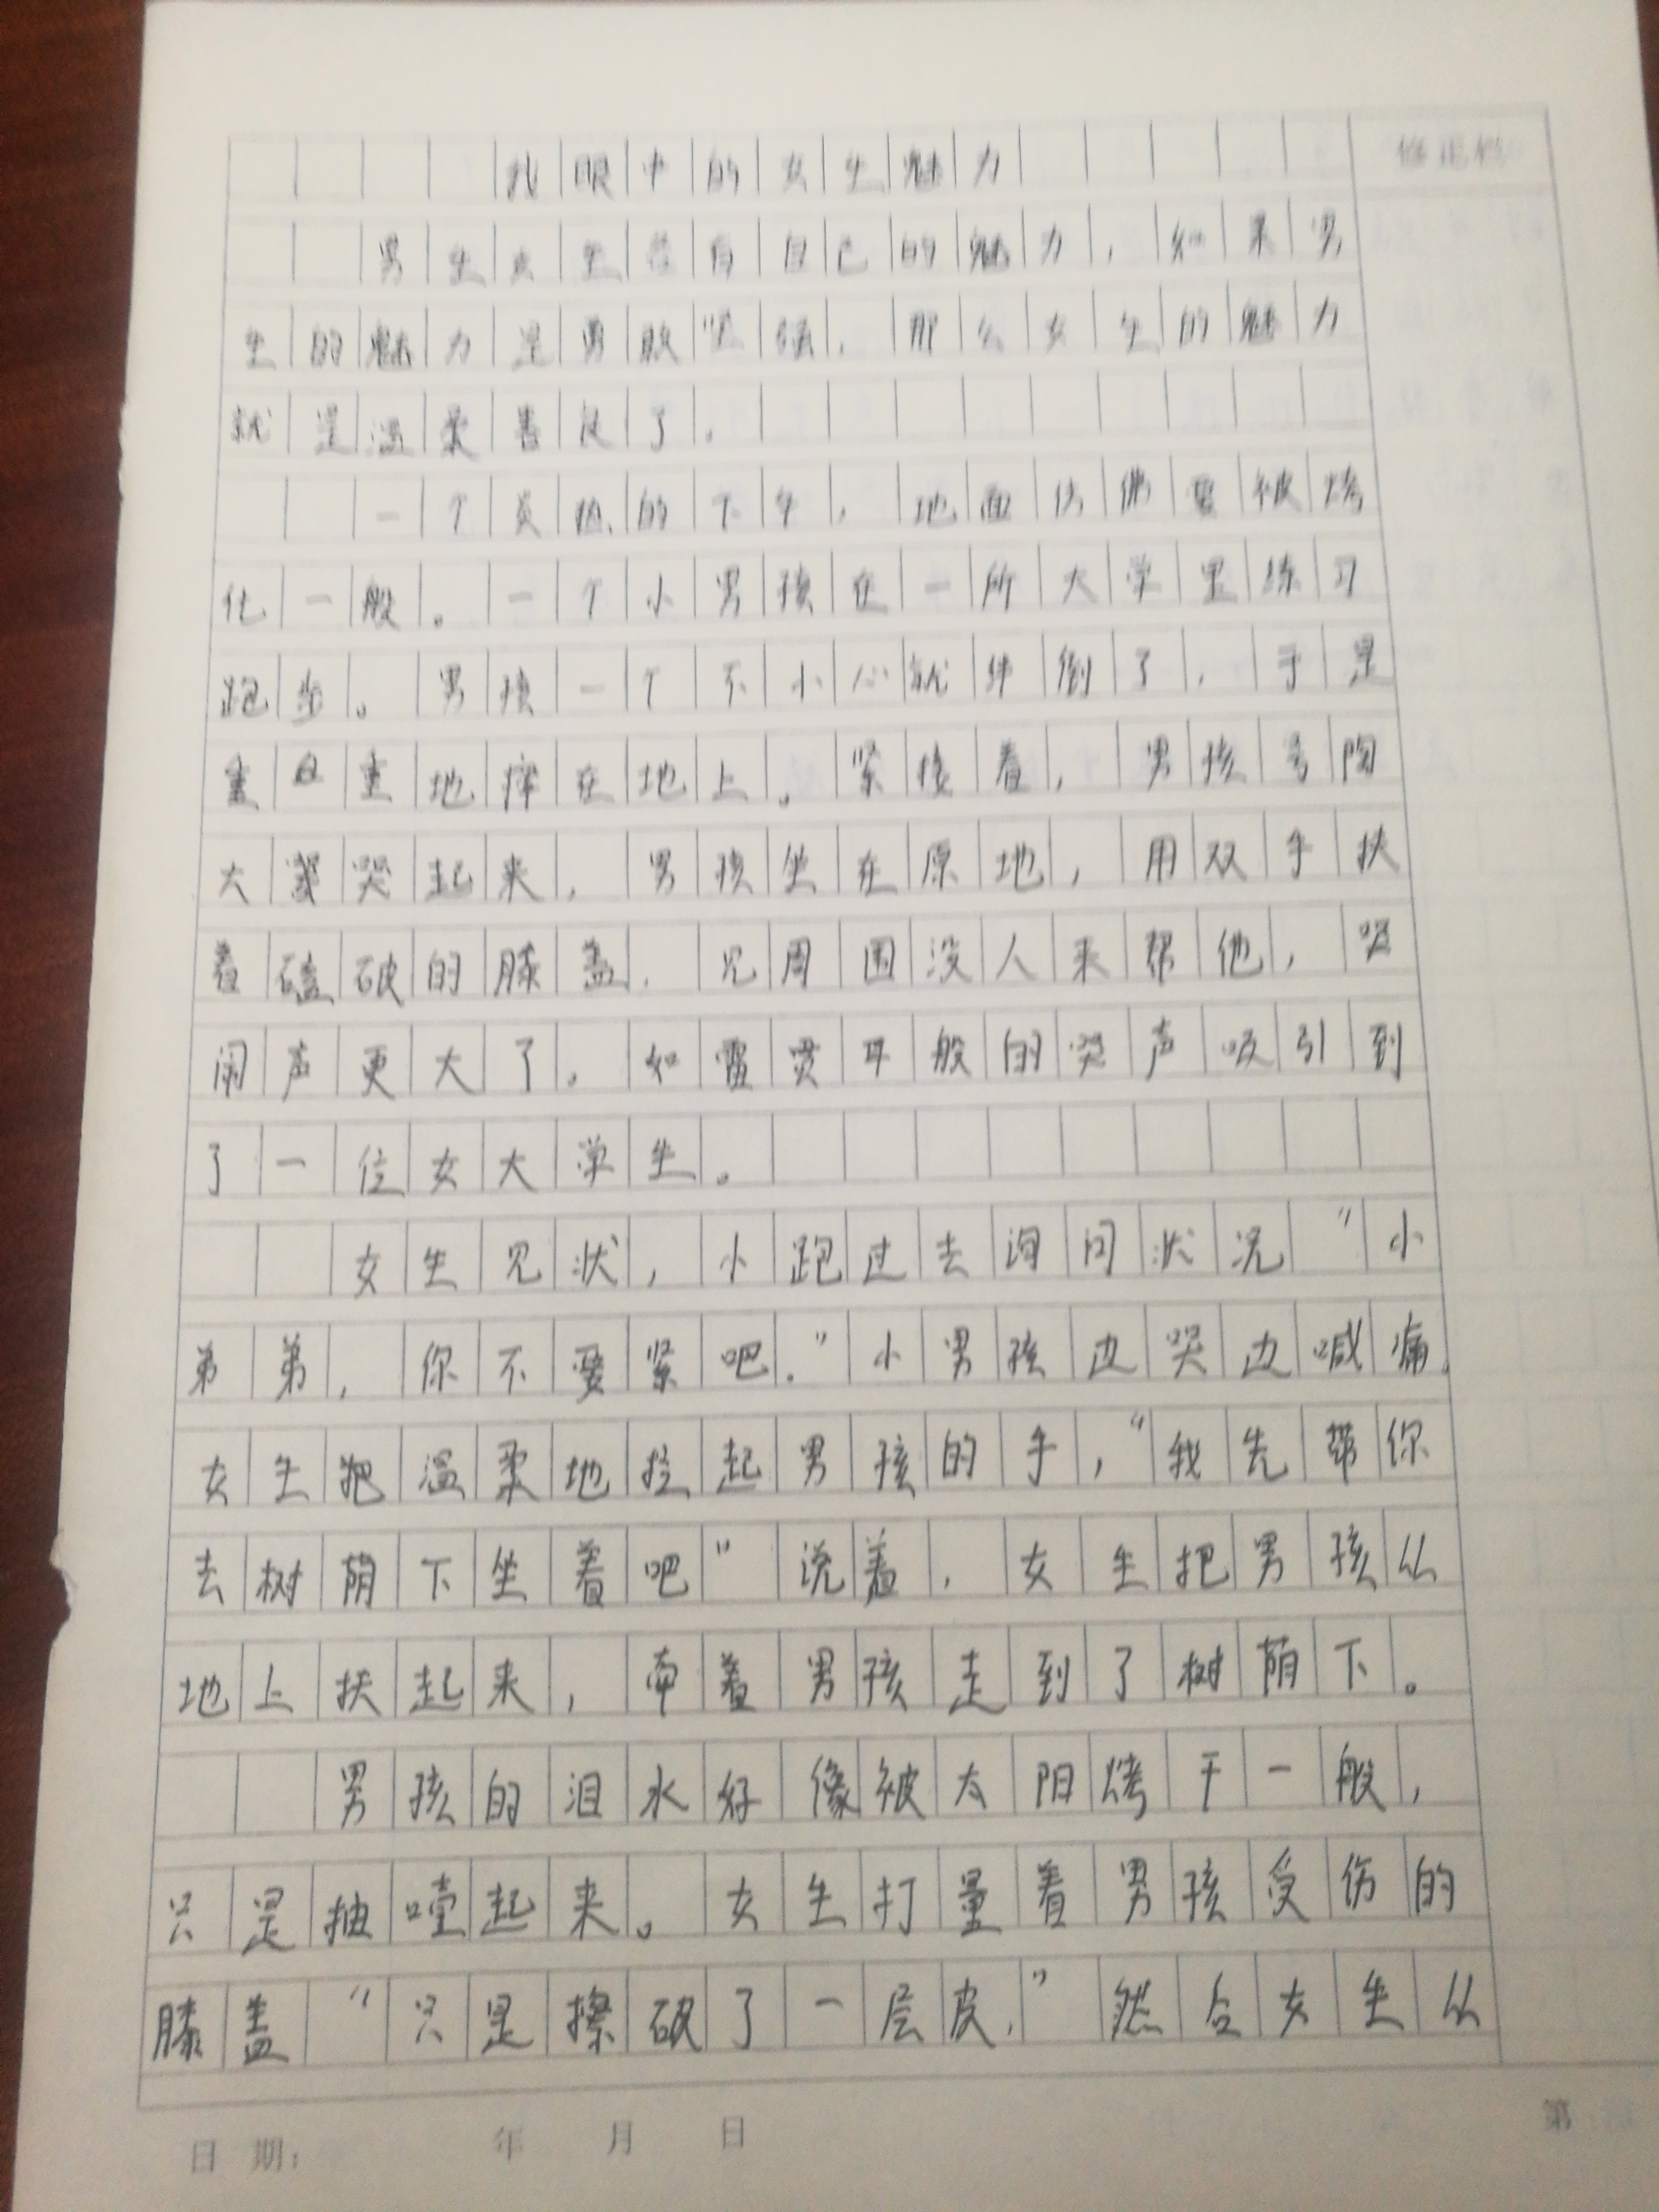 我眼中的女生魅力
修正栏
男生女生各有自己的魅力，如果男
生的魅力是勇敢坚强，那么女生的魅力
就是温柔善良了。
一个炎热的下午，地面仿佛要被烤
化一般。一个小男孩在一所大学里练习
跑步。男孩一个不小心就绊倒了，于是
重重地摔在地上。紧接着，男孩号陶
大哭起来，男孩坐在原地，用双手扶
着磕破的膝盖，见周围没人来帮他，哭
闹声更大了。如雷贯耳般的哭声吸引到
了一位女大学生。
女生见状，小跑过去询问状况"小
弟弟，你不要紧吧."小男孩边哭边喊痛，
女生把温柔地拉起男孩的手，"我先带你
去树荫下坐着吧"说着，女生把男孩从
地上扶起来，牵着男孩走到了树荫下。
男孩的泪水好像被太阳烤干一般，
只是抽噎起来。女生打量着男孩受伤的
膝盖"只是擦破了一层皮，"然后女生从
日期： 年 月 日 第